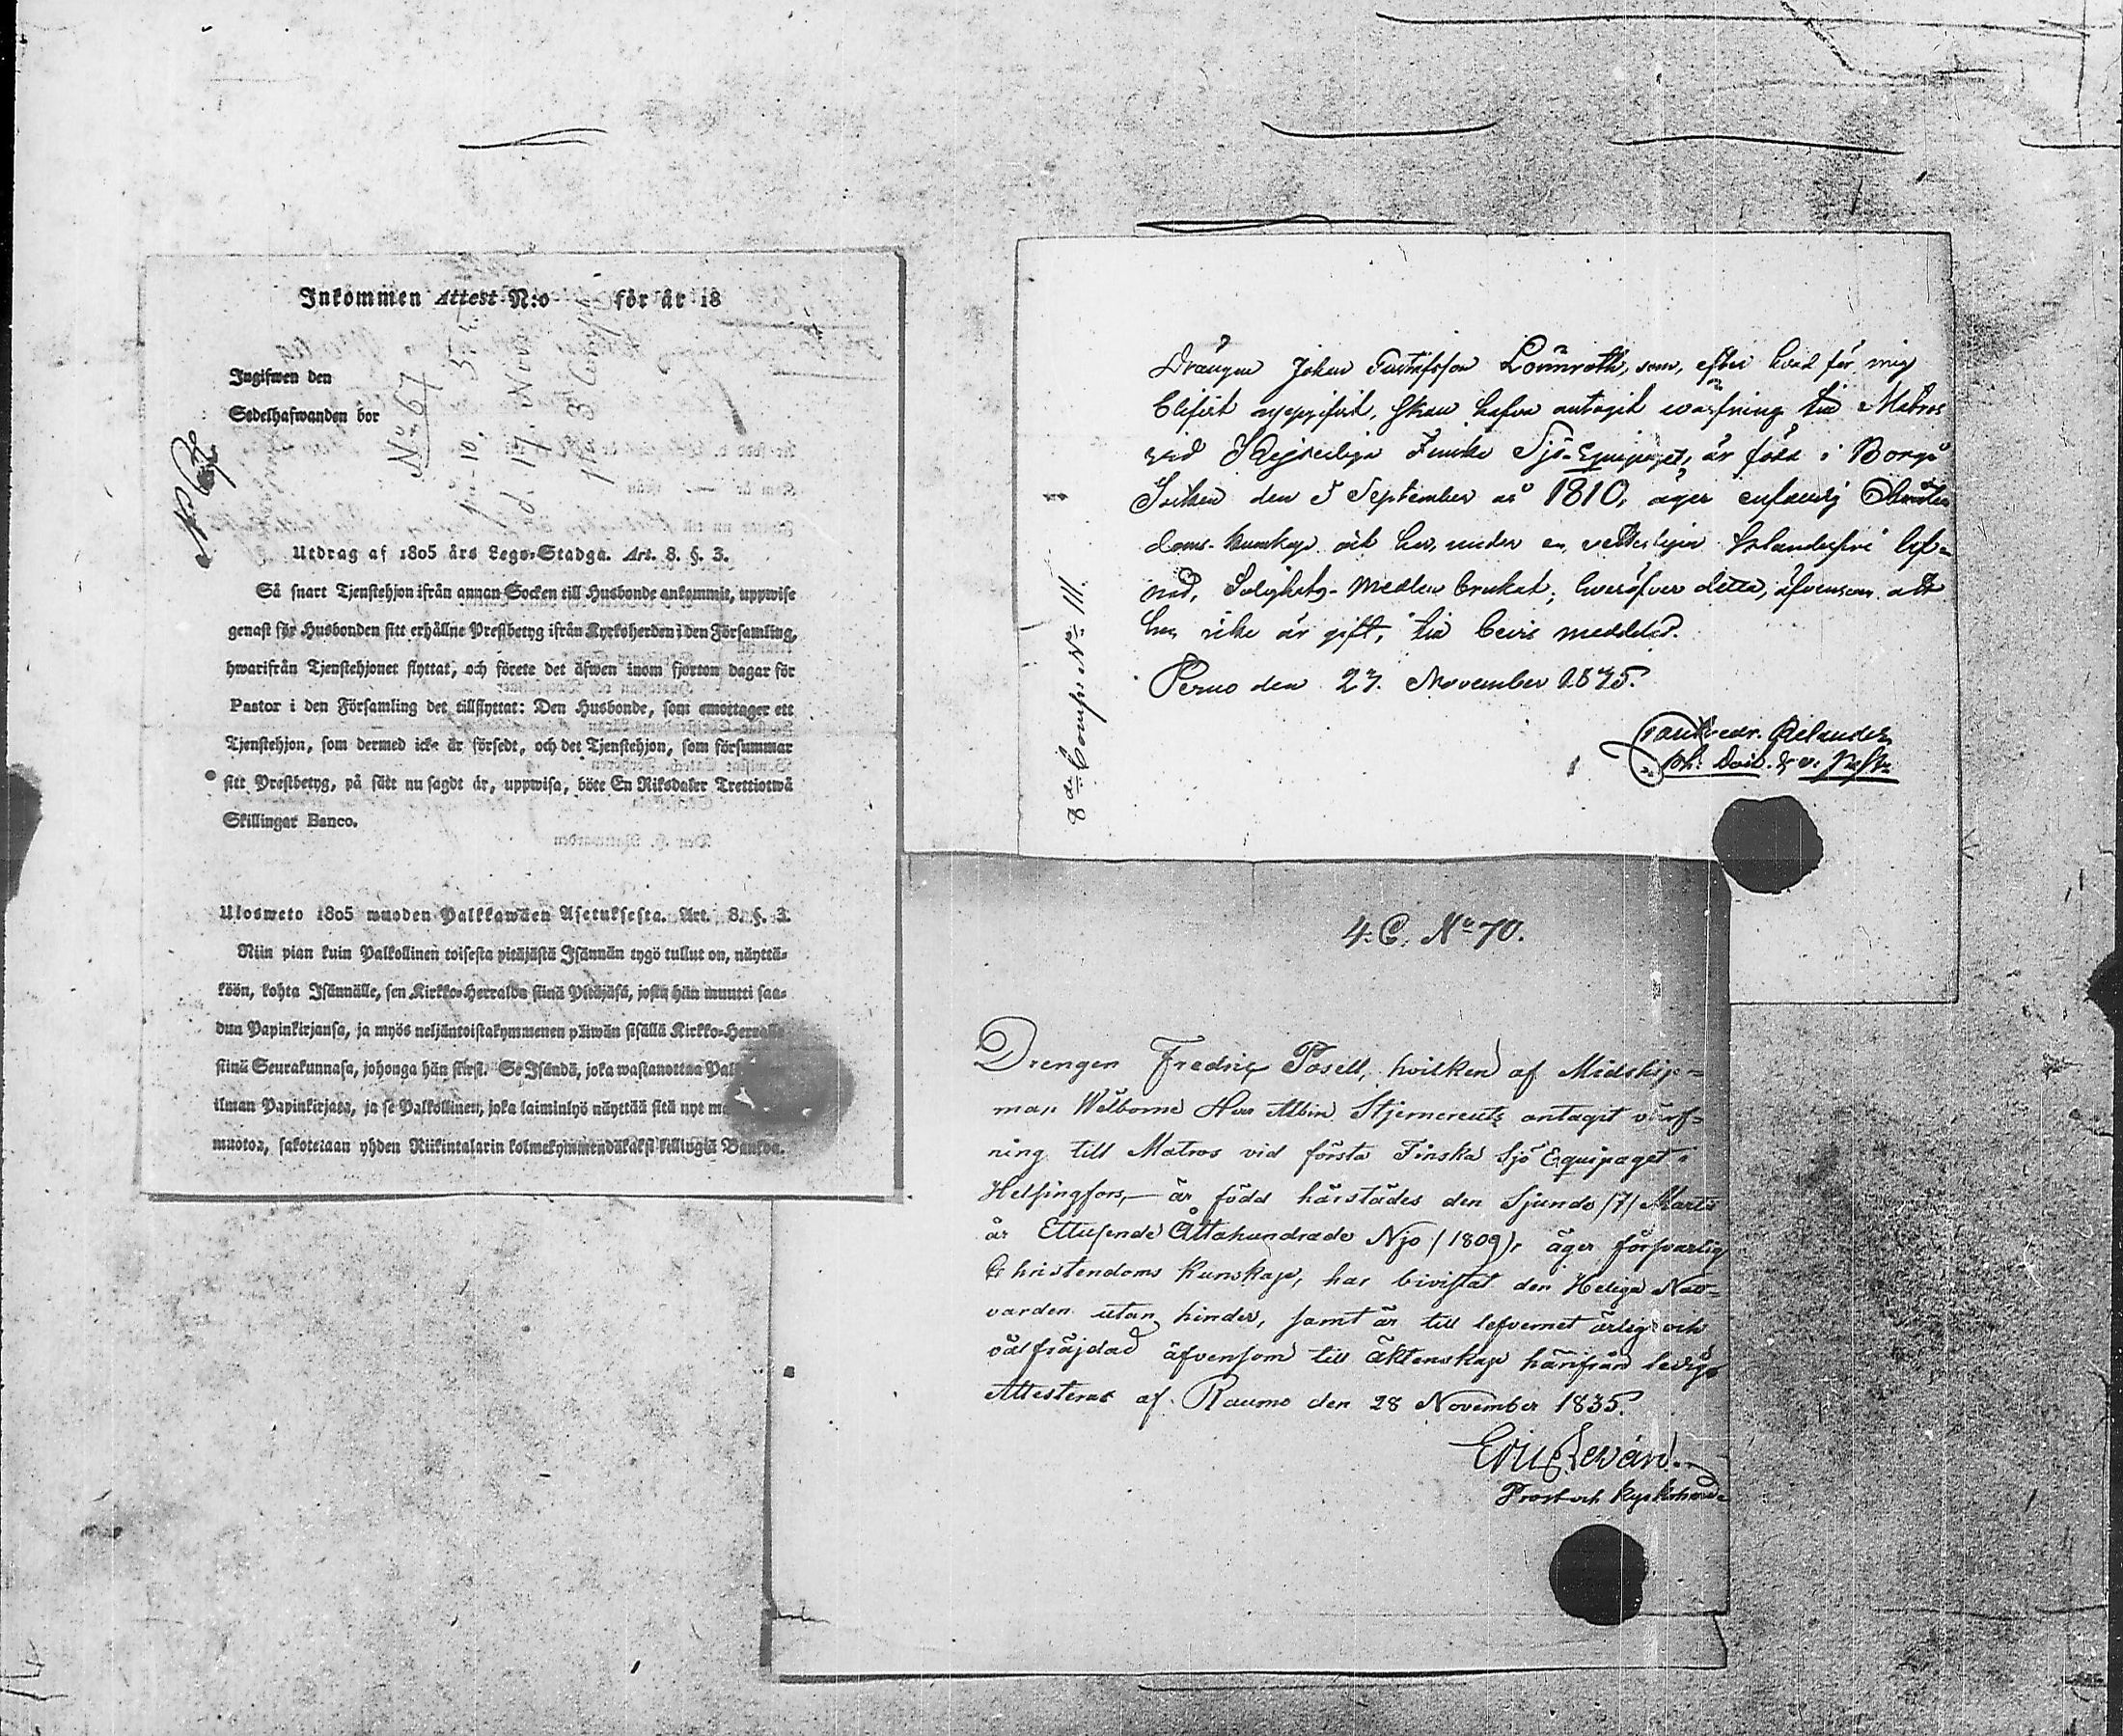 Inkommen Attest N:o för år 18
Ingifwen den
Sedelhafwanden bor
No 67
d. 17. Nov.
No 67
Utdrag af 1805 års Lego-Stadga. Art. 8. §. 3.
Så snart Tjenstehjon ifrån annan Socken till Husbonde ankommit, uppwise
genast för Husbonden sitt erhållne Prestbetyg ifrån Kyrkoherden i den Församling,
hwarifrån Tjenstehjonet flyttat, och förete det äfwen inom fjorton dagar för
Pastor i den Församling det tillflyttat: Den Husbonde, som emottager ett
Tjenstehjon, som dermed icke är försedt, och det Tjenstehjon, som försummar
sitt Prestbetyg, på sätt nu sagdt är, uppwisa, böte En Riksdaler Trettiotwå
Skillingar Banco.
Ulosweto 1805 wuoden Palkkawäen Asetuksesta. Art. 8. §. 3.
Niin pian kuin Palkollinen toisesta pitäjästä Isännän tygö tullut on, näyttä-
köön, kohta Isännälle, sen Kirkko-Herralda siinä Pitäjäsä, josta hän muutti saa-
dun Papinkirjansa, ja myös neljäntoistakymmenen päiwän sisällä Kirkko-Herralle
siinä Seurakunnasa, johonga hän siirsi. Se Isändä, joka wastanottaa
ilman Papinkirjata, ja se Palkollinen, joka laiminlyö näyttää sitä nyt
muotoa, sakotetaan yhden Riikintalarin kolmekymmendäkaksi killingiä Bankoa.
Drängen Johan Gustafsson Lönnroth, som, efter hvad för mig
blifvit uppgifvit, skall hafva antagit värfning till Matros
vid Kejserliga Finska Sjö-Equipaget, är född i Borgå
Socken den 5 September år 1810, äger enfaldig Christen-
doms-kunskap och har, under en veterligen oklanderfri lef-
nad, Salighets-Medlen brukat; hvaröfver detta, äfvensom att
han icke är gift, till bevis meddelas.
Perno den 27. November 1835.
8de Comp. No 111.
4. C. No 70.
Drengen Fredric Posell, hvilken af Midship-
man Wälborne Herr Albin Stjerncreutz antagit värf-
ning till Matros vid första Finska Sjö Equipaget i
Helsingfors, — är född härstädes den Sjunde /7/ Martii
år Ettusende Åttahundrade Njo /1809/, äger försvarlig
Christendoms Kunskap, har bivistat den Heliga Natt-
varden utan hinder, samt är till lefvernet ärlig och
välfräjdad äfvensom till äktenskap härifrån ledig.
Attesteras af Raumo den 28 November 1835.
Prost och Kyrkoherde